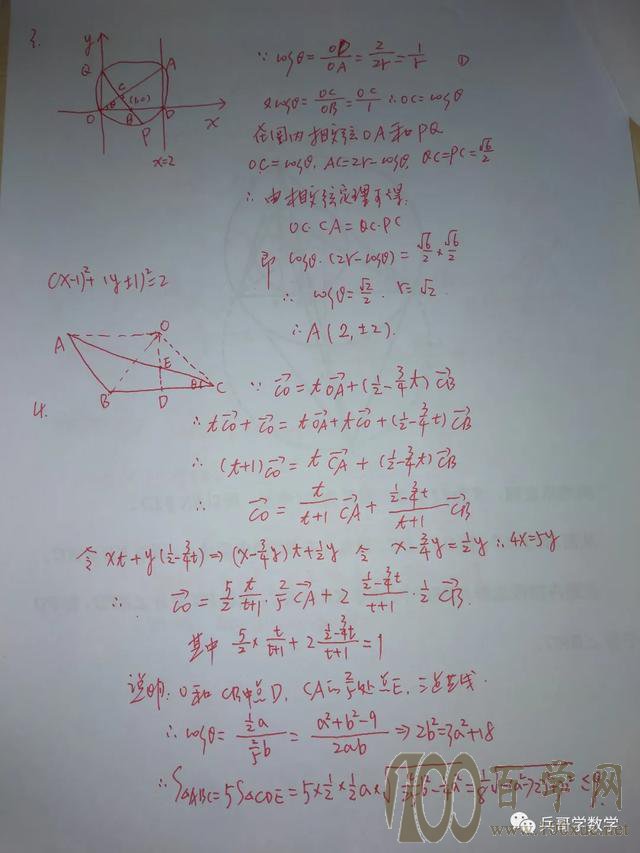 3.
y
Q
A
C
θ
(1,0)
O
B
D
x
P
x=2
∵ cosθ = OD/OA = 2/2r = 1/r ①
cosθ = OC/OB = OC/1 ∴ OC = cosθ
在圆内相交弦OA和PQ
OC = cosθ, AC = 2r - cosθ, QC = PC = √6/2
∴ 由相交弦定理可得:
OC·CA = QC·PC
即 cosθ·(2r - cosθ) = √6/2 × √6/2
∴ cosθ = √2/2 . r = √2 .
∴ A(2, ±2).
(x-1)²+(y±1)²=2
A
O
E
θ
C
B
D
4.
∵ CO = tOA + (1/2 - 3/4 t) CB
∴ tCO + CO = tOA + tCO + (1/2 - 3/4 t) CB
∴ (t+1) CO = t CA + (1/2 - 3/4 t) CB
∴ CO = t/(t+1) CA + (1/2 - 3/4 t)/(t+1) CB
令 xt + y(1/2 - 3/4 t) ⇒ (x - 3/4 y) t + 1/2 y 令 x - 3/4 y = 1/2 y ∴ 4x = 5y
∴ CO = 5/2 t/(t+1) · 2/5 CA + 2 (1/2 - 3/4 t)/(t+1) · 1/2 CB.
其中 5/2 × t/(t+1) + 2 (1/2 - 3/4 t)/(t+1) = 1
说明: O和CB中点D, CA的2/5处点E, 三点共线.
∴ cosθ = (1/2 a)/(2/5 b) = (a²+b²-9)/2ab ⇒ 2b² = 3a² + 18
∴ S△ABC = 5S△CDE = 5 × 1/2 × 1/2 a ×
≤ 9
100百学网
兵哥学数学